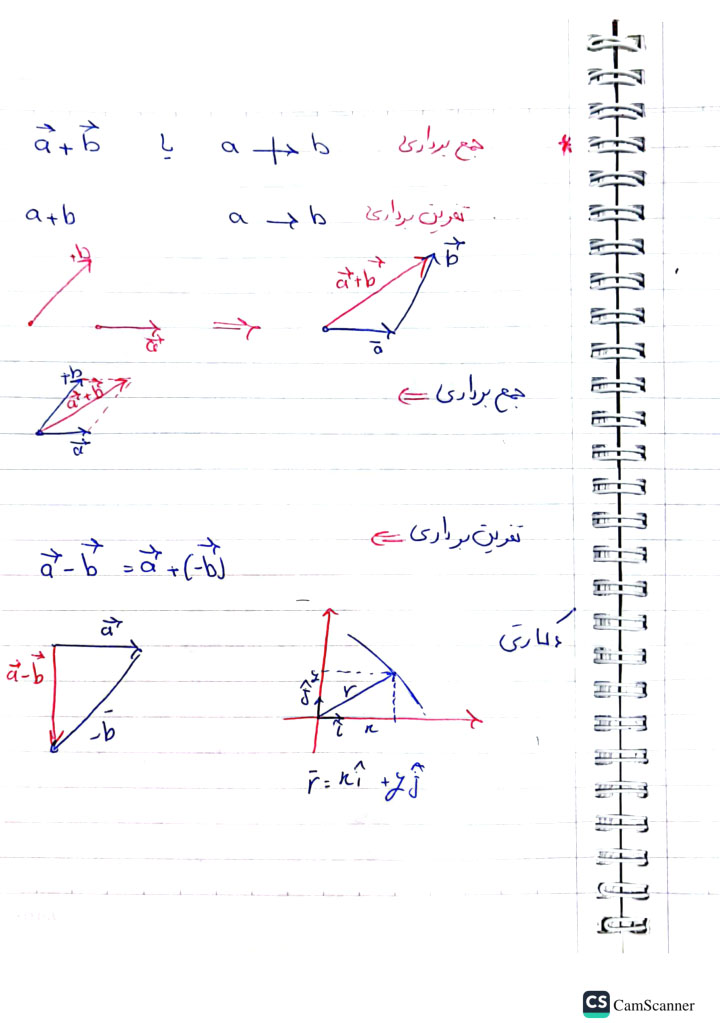 * جمع برداری a +→ b یا a⃗ + b⃗
تفریق برداری a → b a + b
+b
a⃗
⇒
a⃗ + b⃗
b⃗
a̅
جمع برداری ⇐
+b
a⃗ + b⃗
a⃗
تفریق برداری ⇐
a⃗ - b⃗ = a⃗ + (-b⃗)
دکارتی
a⃗
a⃗ - b⃗
-b̅
y
r
ĵ
î
x
r̅ = xî + yĵ
CS CamScanner